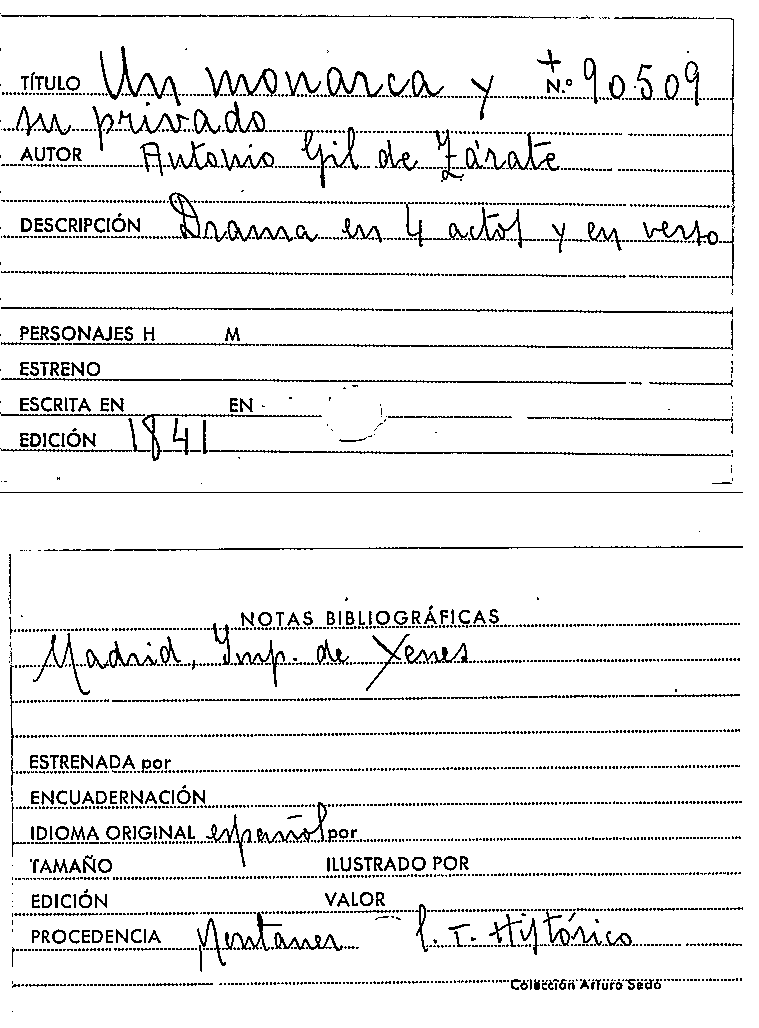 +
TÍTULO Un monarca y N.º 90509
su privado
AUTOR Antonio Gil de Zárate
DESCRIPCIÓN Drama en 4 actos y en verso
PERSONAJES H M
ESTRENO
ESCRITA EN EN
EDICIÓN 1841
NOTAS BIBLIOGRÁFICAS
Madrid, Imp. de Yenes
ESTRENADA por
ENCUADERNACIÓN
IDIOMA ORIGINAL español por
TAMAÑO ILUSTRADO POR
EDICIÓN VALOR
PROCEDENCIA Montaner T. Histórico
Colección Arturo Sedó